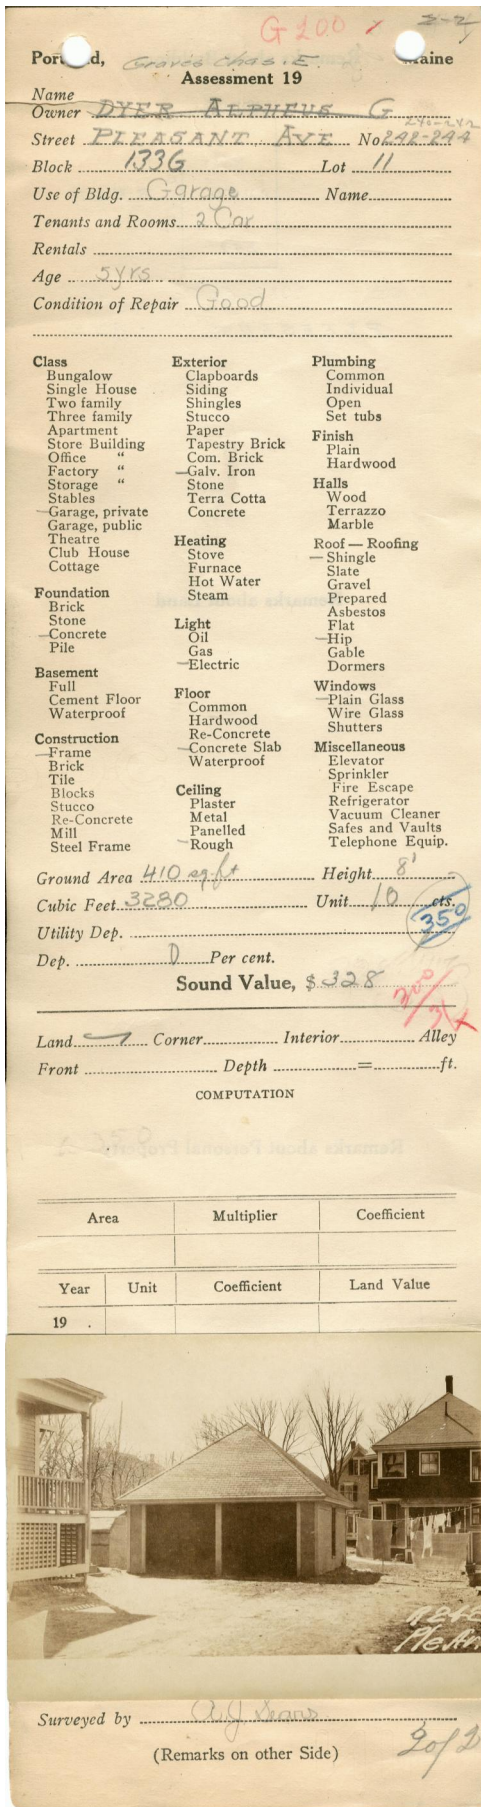 G 200 / 2-2
Portland, Graves Chas. E. Maine
Assessment 19
Name
Owner DYER ALPHEUS G
240-242
Street PLEASANT AVE No. 242-244
Block 133G Lot 11
Use of Bldg. Garage Name
Tenants and Rooms 2 Car
Rentals
Age 5yrs
Condition of Repair Good
Class
Bungalow
Single House
Two family
Three family
Apartment
Store Building
Office "
Factory "
Storage "
Stables
Garage, private
Garage, public
Theatre
Club House
Cottage
Foundation
Brick
Stone
Concrete
Pile
Basement
Full
Cement Floor
Waterproof
Construction
Frame
Brick
Tile
Blocks
Stucco
Re-Concrete
Mill
Steel Frame
Exterior
Clapboards
Siding
Shingles
Stucco
Paper
Tapestry Brick
Com. Brick
Galv. Iron
Stone
Terra Cotta
Concrete
Heating
Stove
Furnace
Hot Water
Steam
Light
Oil
Gas
Electric
Floor
Common
Hardwood
Re-Concrete
Concrete Slab
Waterproof
Ceiling
Plaster
Metal
Panelled
Rough
Plumbing
Common
Individual
Open
Set tubs
Finish
Plain
Hardwood
Halls
Wood
Terrazzo
Marble
Roof — Roofing
Shingle
Slate
Gravel
Prepared
Asbestos
Flat
Hip
Gable
Dormers
Windows
Plain Glass
Wire Glass
Shutters
Miscellaneous
Elevator
Sprinkler
Fire Escape
Refrigerator
Vacuum Cleaner
Safes and Vaults
Telephone Equip.
Ground Area 410 sq.ft Height 8'
Cubic Feet 3280 Unit 10 cts.
350
Utility Dep.
Dep. 0 Per cent.
Sound Value, $ 328
Land Corner Interior Alley
Front Depth = ft.
COMPUTATION
Area Multiplier Coefficient
Year Unit Coefficient Land Value
19 .
Surveyed by A J Sears
(Remarks on other Side)
2 of 2